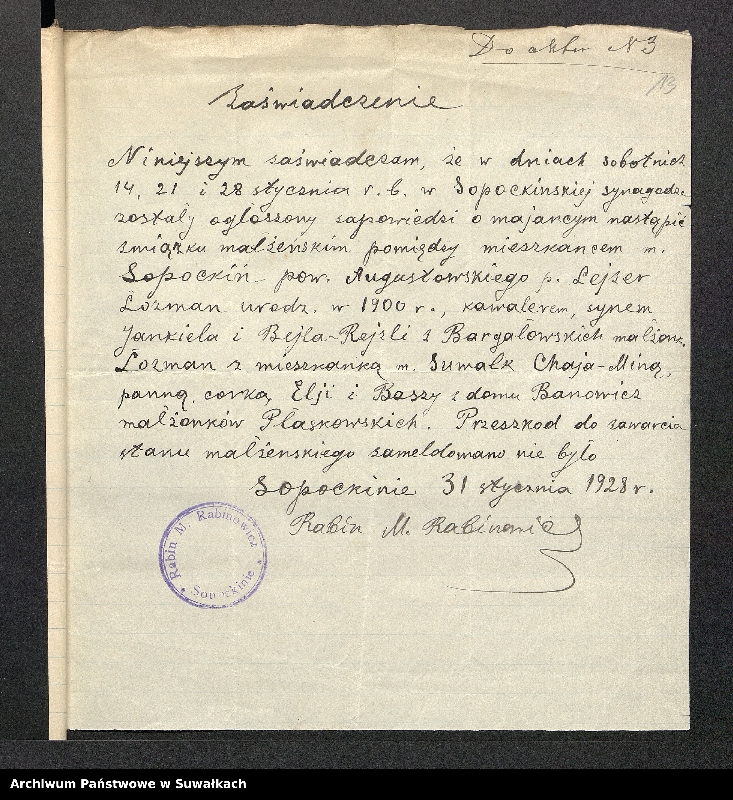 Do aktu N 3
13
Zaświadczenie
Niniejszym zaświadczam, że w dniach sobotnich
14, 21 i 28 stycznia r. b. w Sopockińskiej synagodze
zostały ogłoszony zapowiedzi o mającym nastąpić
związku małżeńskim pomiędzy mieszkańcem m.
Sopockiń pow. Augustowskiego p. Lejzer
Łozman urodz. w 1900 r., kawalerem, synem
Jankiela i Bejla-Rejzli z Bargłowskich małżonk.
Łozman z mieszkanką m. Suwałk Chaja-Miną,
panną, corką Elji i Baszy z domu Banowicz
małżonków Plaskowskich. Przeszkod do zawarcia
stanu małżenskiego zameldowano nie było
Sopockinie 31 stycznia 1928 r.
Rabin M. Rabinowicz
Rabin M. Rabinowicz
Sopockinie
Archiwum Państwowe w Suwałkach